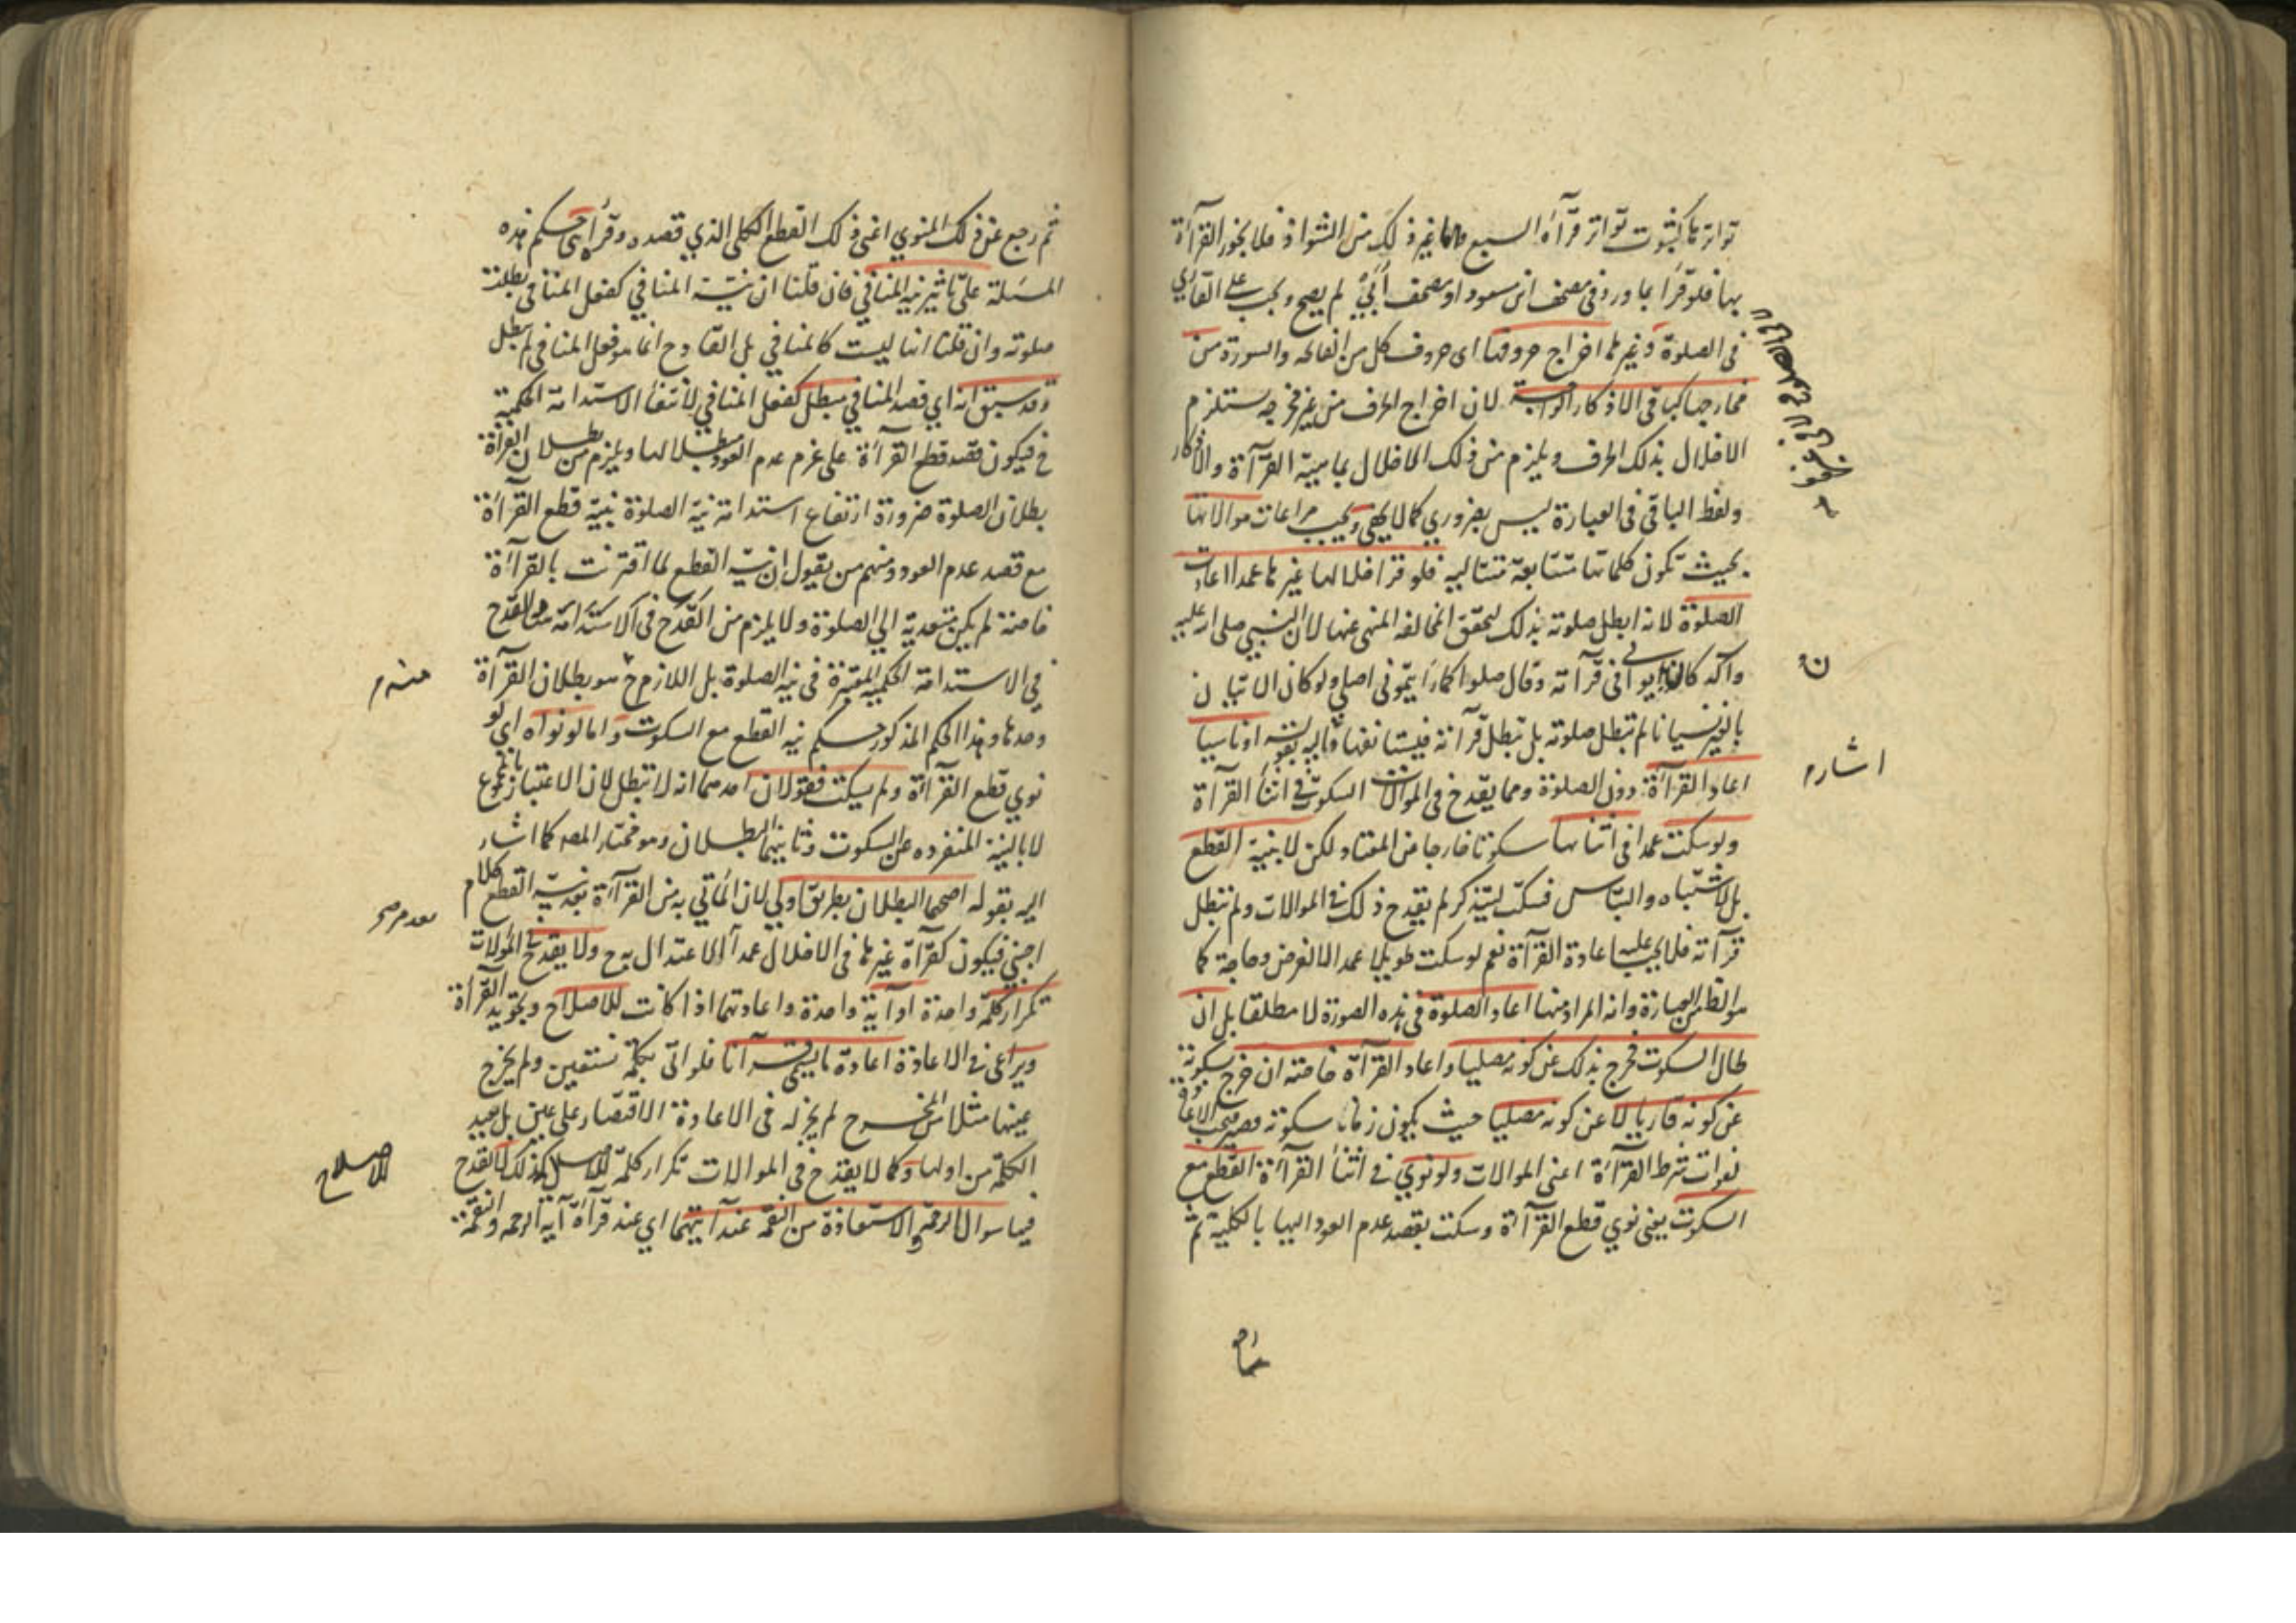 تواترها كثبوت تواتر قرآءة السبع واما غير ذلك من الشواذ فلا يجوز القرآءة
بها فلو قرا بما ورد في مصحف ابن مسعود او مصحف أُبَيّ لم يصح ويجب على القاري
في الصلوة وغيرها اخراج حروفها اى حروف كل من الفاتحة والسورة من
مخارجها كباقي الاذكار الواجبة لان اخراج الحرف من غير مخرجه يستلزم
الاخلال بذلك الحرف ويلزم من ذلك الاخلال بماهية القرآءة والاذكار
ولفظ الباقي في العبارة ليس بضروري كما لا يخفى ويجب مراعات موالاتها
بحيث تكون كلماتها متتابعة متتالية فلو قرا خلالها غيرها عمدا اعادت
الصلوة لانه ابطل صلوته بذلك لتحقق المخالفة المنهى عنها لان النبي صلى الله عليه
وآله كان يوالي في قرآءته وقال صلوا كما رايتموني اصلي ولو كان الاتيان ن
بالغير نسيانا لم تبطل صلوته بل تبطل قرآءته فيستانفها واليه بقوله او ناسيا
اشاره
اعاد القرآءة دون الصلوة ومما يقدح في الموالات السكوت في اثنأ القرآءة
ولو سكت عمدا في اثنائها سكوتا خارجا عن المعتاد لكن لا بنية القطع
بل لاشتباه والتباس فسكت ليتذكر لم يقدح ذلك في الموالات ولم تبطل
قرآءته فلا يجب عليه اعادة القرآءة نعم لو سكت طويلا عمدا لا لغرض وحاجة كما
هو الظاهر من العبارة وانه المراد منها اعاد الصلوة في هذه الصورة لا مطلقا بل ان
طال السكوت فخرج بذلك عن كونه مصليا واعاد القرآءة خاصة ان خرج بسكوته
عن كونه قاريا لا عن كونه مصليا حيث يكون زمان سكوته قصيرا فيجب الاعادة
لفوات شرط القرآءة اعنى الموالات ولو نوي في اثنأ القرآءة القطع مع
السكوت يعنى نوي قطع القرآءة وسكت بقصد عدم العود اليها بالكلية ثم
ثم رجع عن ذلك المنوي اعنى ذلك القطع الكلى الذي قصده وقرأ بنى حكم هذه
المسئلة على تاثير نية المنافي فان قلنا ان نية المنافي كفعل المنافى بطلت
صلوته وان قلنا انها ليست كالمنافي بل القادح انما هو فعل المنافى لم تبطل
وقد سبق انه اي قصد المنافي مبطل كفعل المنافي لانتفأ الاستدامة الحكمية
ح فيكون قصد قطع القرآءة على عزم عدم العود مبطلا لها ويلزم من بطلان القرآءة
بطلان الصلوة ضرورة ارتفاع استدامة نية الصلوة بنية قطع القرآءة
مع قصد عدم العود ومنهم من يقول ان نية القطع لما اقترنت بالقرآءة
خاصة لم يكن متعدية الى الصلوة ولا يلزم من القدح في الاستدامة هو القدح
في الاستدامة الحكمية المعتبرة في نية الصلوة بل اللازم ح هو بطلان القرآءة
وحدها وهذا الحكم المذكور حكم نية القطع مع السكوت واما لو نواه اى لو
نوي قطع القرآءة ولم يسكت فقولان احدهما انه لا تبطل لان الاعتبار بالمجموع
لا بالنية المنفردة عن السكوت وثانيهما البطلان وهو مختار المصه كما اشار
اليه بقوله اصحهما البطلان بطريق اولى لان المأتي به من القرآءة بعد نية القطع كلام
اجنبي فيكون كقرآءة غيرها في الاخلال عمدا لا اعتداد به ح ولا يقدح في الموالات
تكرار كلمة واحدة او آية واحدة واعادتهما اذا كانت للاصلاح وتجويد القرآءة
ويراعى في الاعادة اعادة ما يسمى قرآنا فلو اتى بكلمة نستعين ولم يخرج
عينها مثلا من المخرج لم يجز له في الاعادة الاقتصار على عين بل يعيد
الكلمة من اولها وكما لا يقدح في الموالات تكرار كلمة للاصلاح كذلك لا يقدح
الاصلاح
فيها سوال الرحمة والاستعاذة من النقمة عند آيتهما اي عند قرآءة آية الرحمة والنقمة